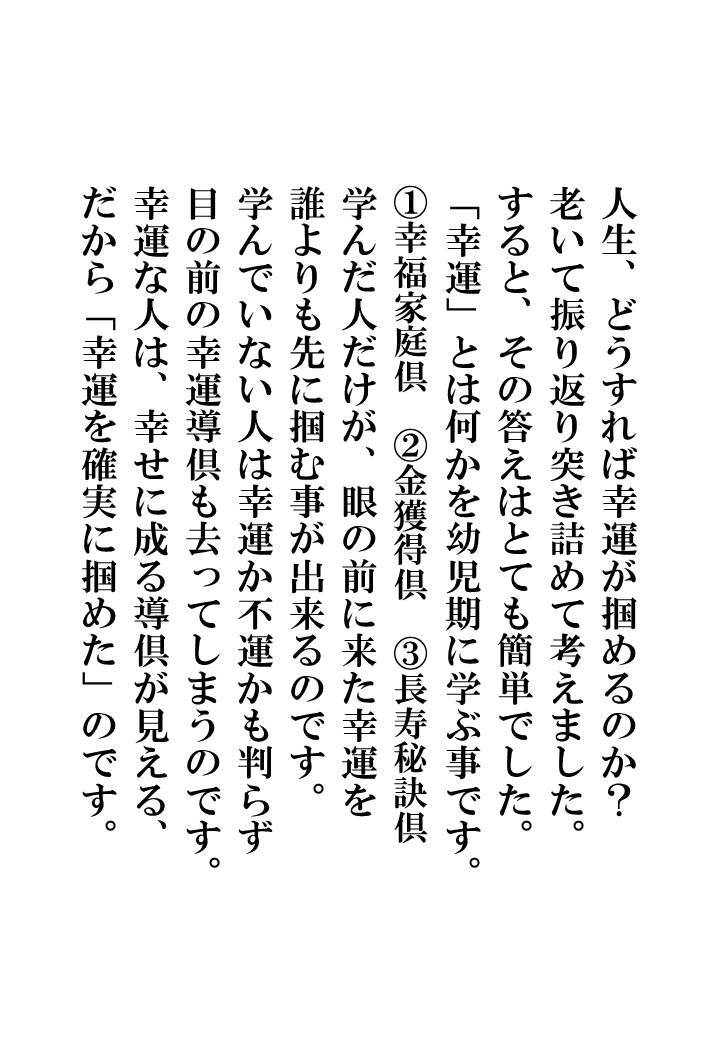 人生、どうすれば幸運が掴めるのか？
老いて振り返り突き詰めて考えました。
すると、その答えはとても簡単でした。
「幸運」とは何かを幼児期に学ぶ事です。
①幸福家庭倶　②金獲得倶　③長寿秘訣倶
学んだ人だけが、眼の前に来た幸運を
誰よりも先に掴む事が出来るのです。
学んでいない人は幸運か不運かも判らず
目の前の幸運導倶も去ってしまうのです。
幸運な人は、幸せに成る導倶が見える、
だから「幸運を確実に掴めた」のです。